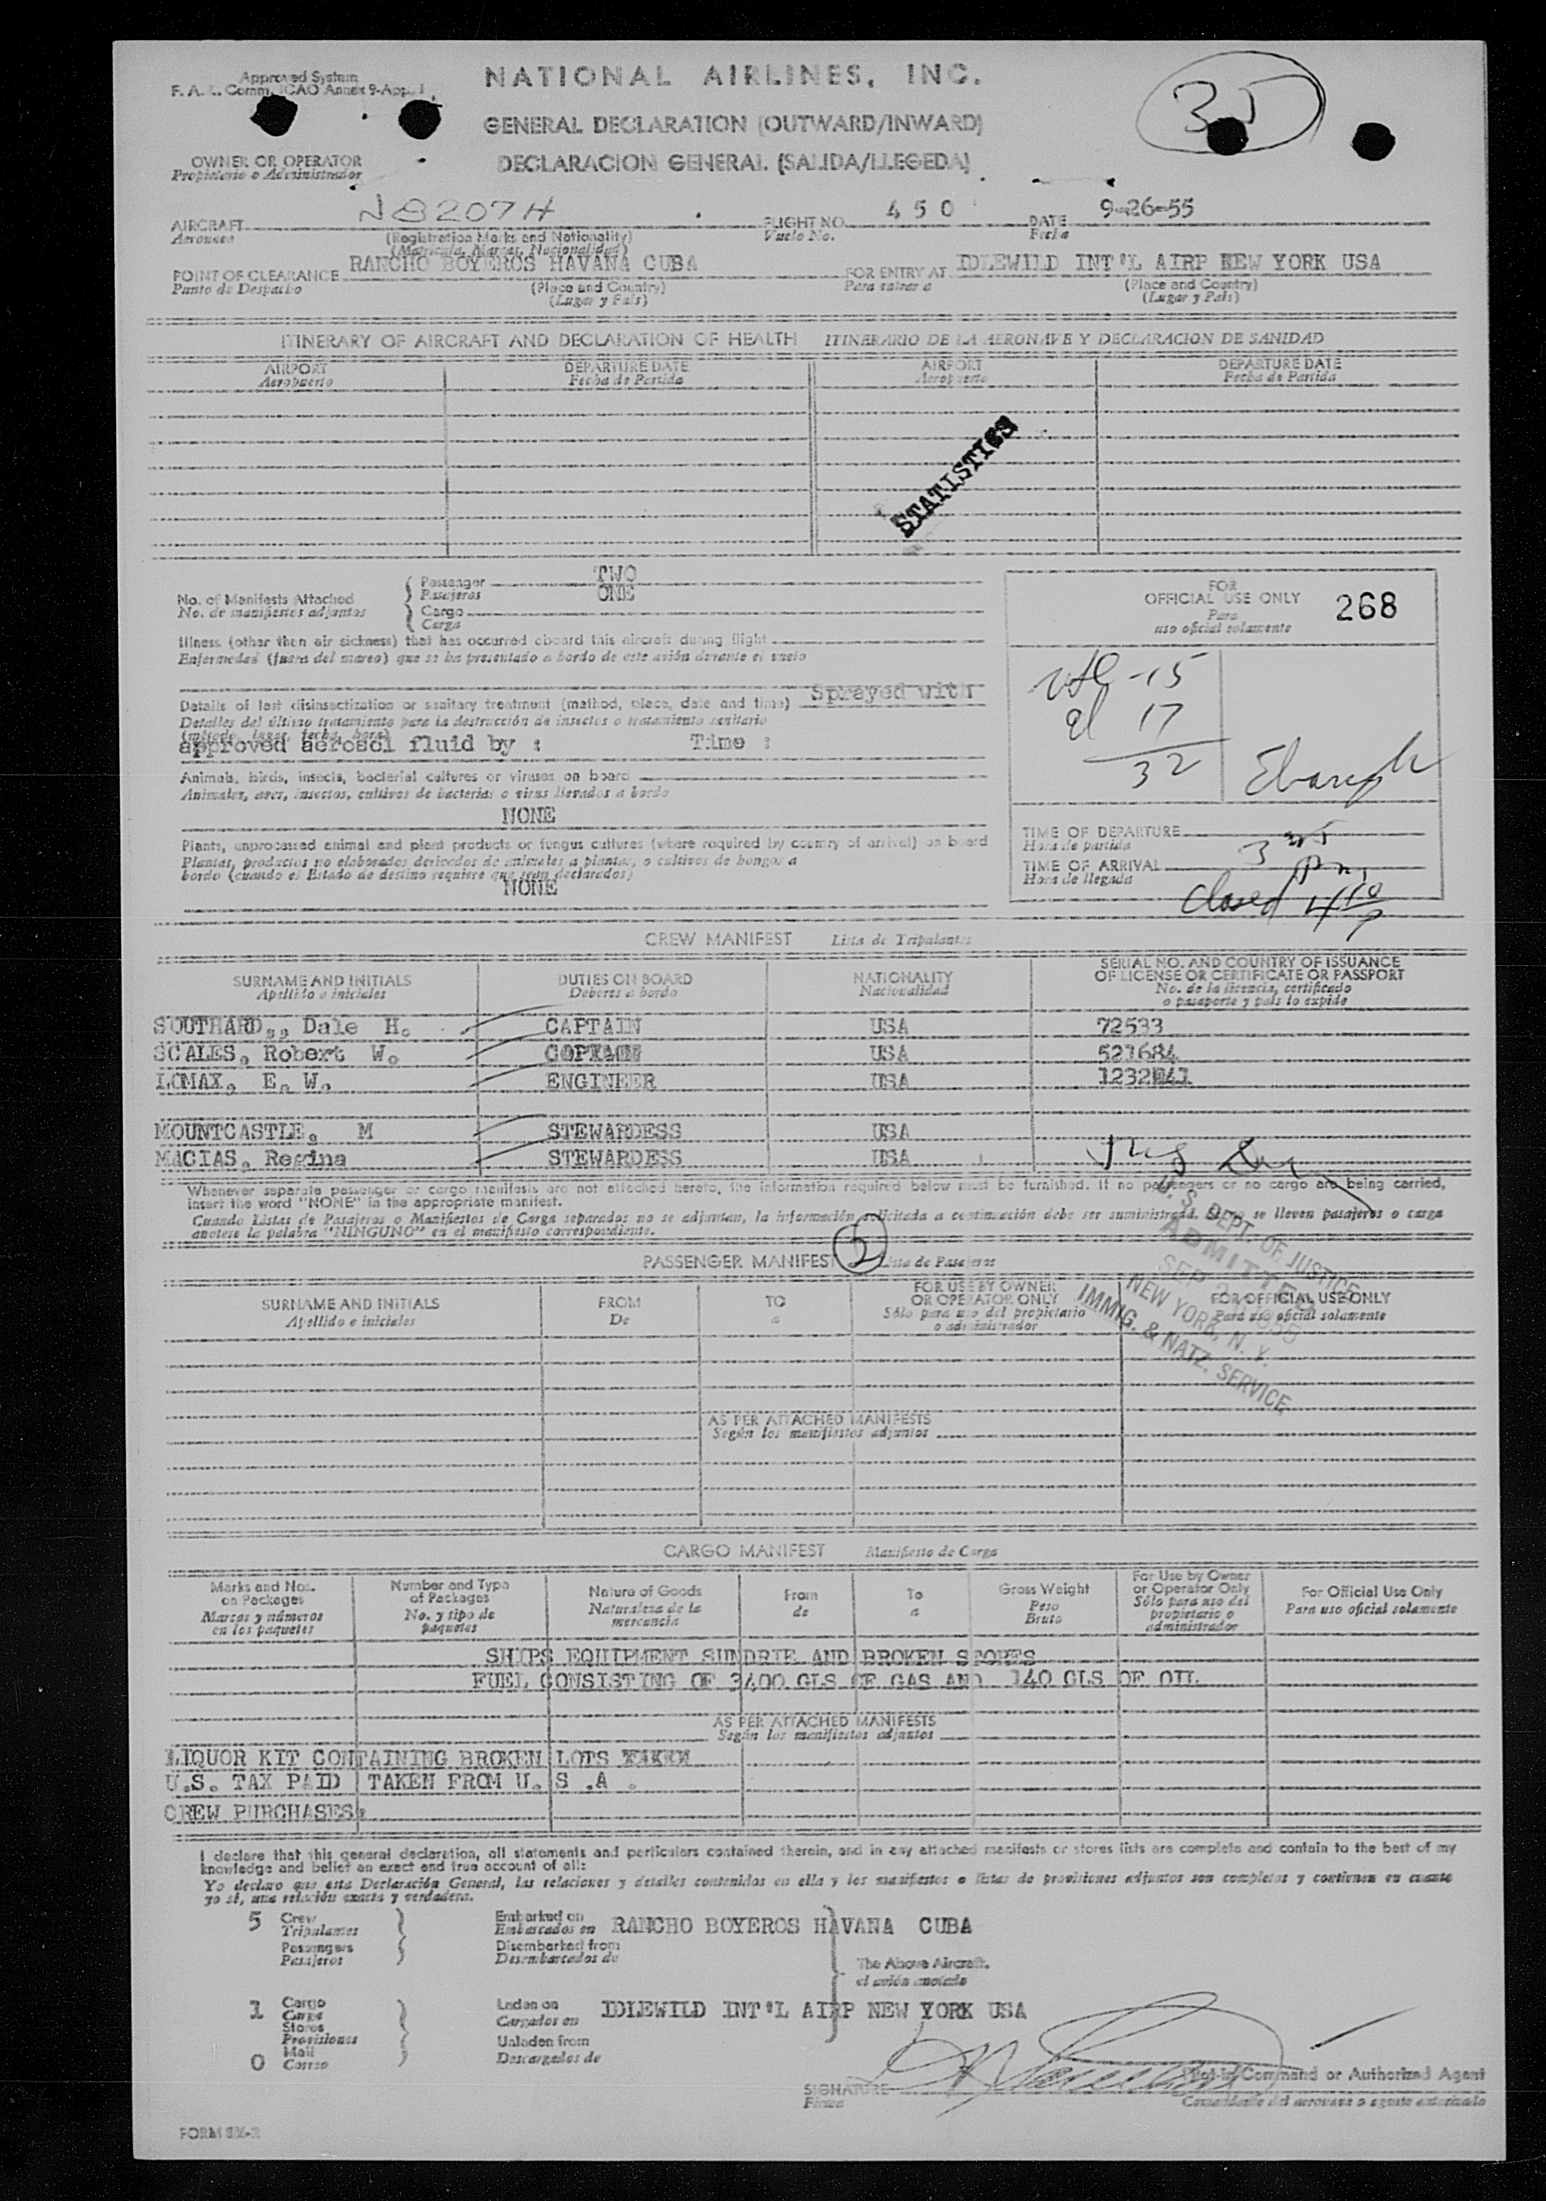 Approved System
F. A. L. Comm. ICAO Annex 9-App. 1
NATIONAL AIRLINES, INC.
35
GENERAL DECLARATION (OUTWARD/INWARD)
OWNER OR OPERATOR
Propietario o Administrador
DECLARACION GENERAL (SALIDA/LLEGEDA)
AIRCRAFT N8207H FLIGHT NO. 450 DATE 9-26-55
Aeronave (Registration Marks and Nationality) Vuelo No. Fecha
(Matricula, Marcas, Nacionalidad)
POINT OF CLEARANCE RANCHO BOYEROS HAVANA CUBA FOR ENTRY AT IDLEWILD INT'L AIRP NEW YORK USA
Punto de Despacho (Place and Country) Para entrar a (Place and Country)
(Lugar y País) (Lugar y País)
ITINERARY OF AIRCRAFT AND DECLARATION OF HEALTH ITINERARIO DE LA AERONAVE Y DECLARACION DE SANIDAD
AIRPORT DEPARTURE DATE AIRPORT DEPARTURE DATE
Aeropuerto Fecha de Partida Aeropuerto Fecha de Partida
STATISTICS
No. of Manifests Attached Passenger TWO
No. de manifiestos adjuntos Pasajeros ONE
Cargo
Carga
FOR
OFFICIAL USE ONLY 268
Para
uso oficial solamente
Illness (other than air sickness) that has occurred aboard this aircraft during flight
Enfermedad (fuera del mareo) que se ha presentado a bordo de este avión durante el vuelo
Details of last disinsectization or sanitary treatment (method, place, date and time) Sprayed with
Detalles del último tratamiento para la destrucción de insectos o tratamiento sanitario
(método, lugar, fecha, hora)
approved aerosol fluid by : Time :
-15
17
32
Animals, birds, insects, bacterial cultures or viruses on board
Animales, aves, insectos, cultivos de bacterias o virus llevados a bordo
NONE
Plants, unprocessed animal and plant products or fungus cultures (where required by country of arrival) on board
Plantas, productos no elaborados derivados de animales a plantas, o cultivos de hongos a
bordo (cuando el Estado de destino requiere que sean declarados)
NONE
TIME OF DEPARTURE
Hora de partida
TIME OF ARRIVAL 3 25 pm
Hora de llegada
Closed 4 10 p
CREW MANIFEST Lista de Tripulantes
SURNAME AND INITIALS DUTIES ON BOARD NATIONALITY SERIAL NO. AND COUNTRY OF ISSUANCE
Apellido e iniciales Deberes a bordo Nacionalidad OF LICENSE OR CERTIFICATE OR PASSPORT
No. de la licencia, certificado
o pasaporte y país lo expide
SOUTHARD,, Dale H. CAPTAIN USA 72533
SCALES, Robert W. USA 521684
LOMAX, E. W. ENGINEER USA
MOUNTCASTLE, M STEWARDESS USA
MACIAS, Regina STEWARDESS USA
Whenever separate passenger or cargo manifests are not attached hereto, the information required below must be furnished. If no passengers or no cargo are being carried,
insert the word "NONE" in the appropriate manifest.
Cuando Listas de Pasajeros o Manifiestos de Carga separados no se adjuntan, la información solicitada a continuación debe ser suministrada. se lleven pasajeros o carga
anotese la palabra "NINGUNO" en el manifiesto correspondiente.
U. S. DEPT. OF JUSTICE
ADMITTED
SEP 1955
NEW YORK, N. Y.
IMMIG. & NATZ. SERVICE
PASSENGER MANIFEST Lista de Pasajeros
SURNAME AND INITIALS FROM TO FOR USE BY OWNER OR OPERATOR ONLY FOR OFFICIAL USE ONLY
Apellido e iniciales De a Sólo para uso del propietario o administrador Para uso oficial solamente
AS PER ATTACHED MANIFESTS
Según los manifiestos adjuntos
CARGO MANIFEST Manifiesto de Carga
Marks and Nos. on Packages Number and Type of Packages Nature of Goods From To Gross Weight For Use by Owner or Operator Only For Official Use Only
Marcas y números en los paquetes No. y tipo de paquetes Naturaleza de la mercancia de a Peso Bruto Sólo para uso del propietario o administrador Para uso oficial solamente
SHIPS EQUIPMENT SUNDRIE AND BROKEN STORES
FUEL CONSISTING OF 3400 GLS OF GAS AND 140 GLS OF OIL
AS PER ATTACHED MANIFESTS
Según los manifiestos adjuntos
LIQUOR KIT CONTAINING BROKEN LOTS TAKEN
U.S. TAX PAID TAKEN FROM U. S .A .
CREW PURCHASES:
I declare that this general declaration, all statements and particulars contained therein, and in any attached manifests or stores lists are complete and contain to the best of my
knowledge and belief an exact and true account of all:
Yo declaro que esta Declaración General, las relaciones y detalles contenidos en ella y los manifiestos o listas de provisiones adjuntos son completos y contienen en cuanto
yo sé, una relación exacta y verdadera.
5 Crew Embarked on RANCHO BOYEROS HAVANA CUBA
Tripulantes Embarcados en
Passengers Disembarked from
Pasajeros Desembarcados de
The Above Aircraft.
el avión anotado
1 Cargo Laden on IDLEWILD INT'L AIRP NEW YORK USA
Carga Cargados en
Stores
Provisiones Unladen from
0 Mail Descargados de
Correo
SIGNATURE Pilot-in-Command or Authorized Agent
Firma Comandante del aeronave o agente autorizado